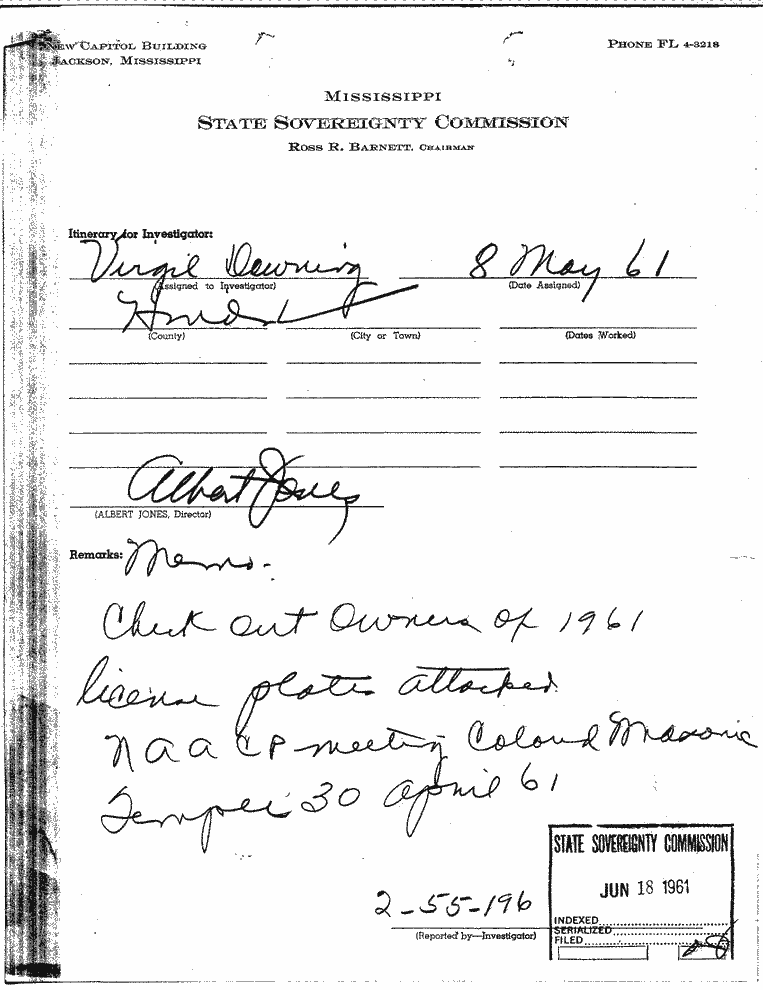 NEW CAPITOL BUILDING
JACKSON, MISSISSIPPI
PHONE FL 4-3218
MISSISSIPPI
STATE SOVEREIGNTY COMMISSION
ROSS R. BARNETT, CHAIRMAN
Itinerary for Investigator:
Virgil Downing 8 May 61
(Assigned to Investigator) (Date Assigned)
Hinds
(County) (City or Town) (Dates Worked)
Albert Jones
(ALBERT JONES, Director)
Remarks: Memo.
Check out owners of 1961
license plates attached
NAACP meeting Colored Masonic
Temple 30 April 61
STATE SOVEREIGNTY COMMISSION
JUN 18 1961
2-55-196
INDEXED
SERIALIZED
FILED
(Reported by—Investigator)